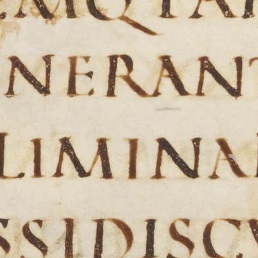 EMQTAN
NERANT
LIMINA
SSIDISCV